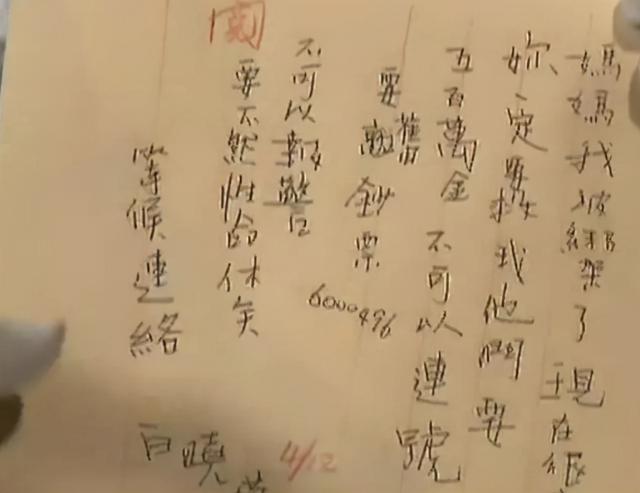 媽媽我被綁架了現在很
妳一定要救我他們要
五百萬金 不可以連號
要舊鈔票
6000496
不可以報警
要不然性命休矣
閱
等候連絡
白曉
4/12